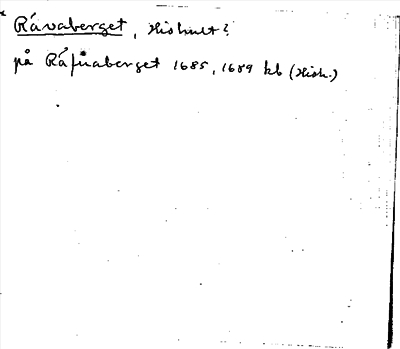 Råvaberget, Hishult?
på Råfuaberget 1685, 1689 kb (Hish.)